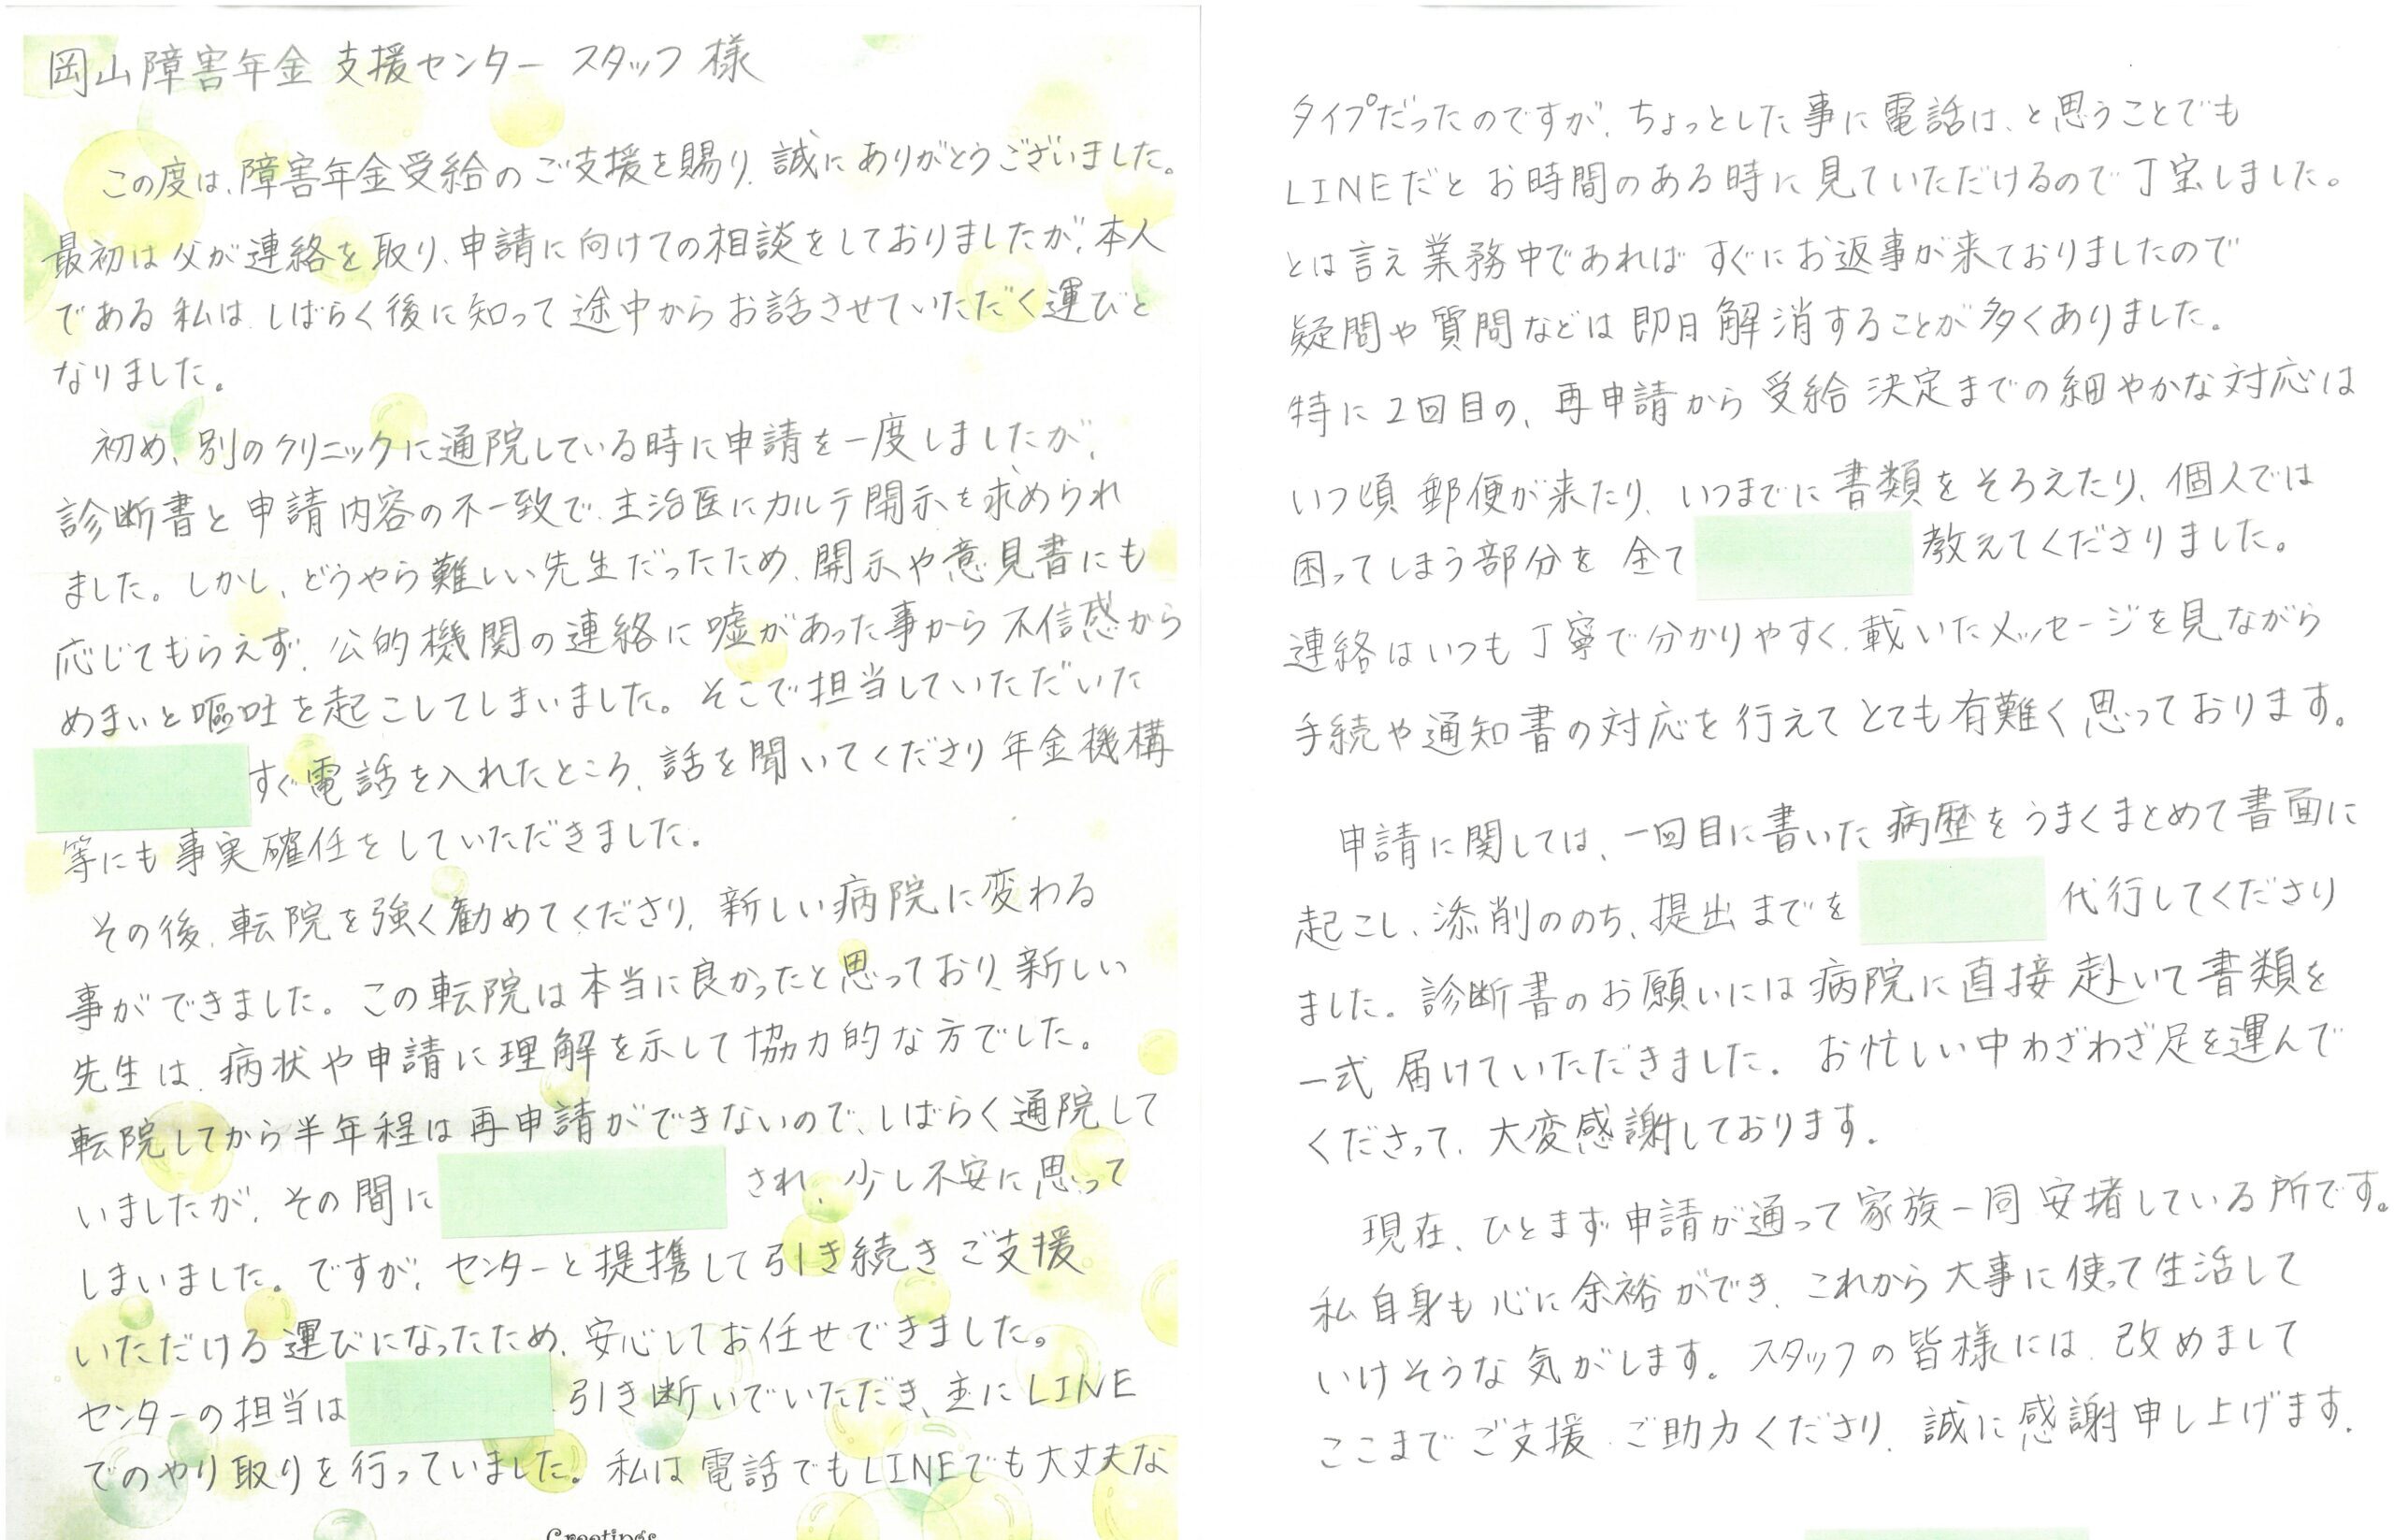 岡山障害年金 支援センター スタッフ 様
この度は、障害年金受給のご支援を賜り、誠にありがとうございました。
最初は父が連絡を取り、申請に向けての相談をしておりましたが、本人
である私は、しばらく後に知って途中からお話させていただく運びと
なりました。
初め、別のクリニックに通院している時に申請を一度しましたが、
診断書と申請内容の不一致で、主治医にカルテ開示を求められ
ました。しかし、どうやら難しい先生だったため、開示や意見書にも
応じてもらえず、公的機関の連絡に嘘があった事から不信感から
めまいと嘔吐を起こしてしまいました。そこで担当していただいた
すぐ電話を入れたところ、話を聞いてくださり年金機構
等にも事実確任をしていただきました。
その後、転院を強く勧めてくださり、新しい病院に変わる
事ができました。この転院は本当に良かったと思っており、新しい
先生は、病状や申請に理解を示して協力的な方でした。
転院してから半年程は再申請ができないので、しばらく通院して
いましたが、その間に
され、少し不安に思って
しまいました。ですが、センターと提携して引き続きご支援
いただける運びになったため、安心してお任せできました。
センターの担当は
引き断いでいただき、主にLINE
でのやり取りを行っていました。私は電話でもLINEでも大丈夫な
Greetings
タイプだったのですが、ちょっとした事に電話は、と思うことでも
LINEだとお時間のある時に見ていただけるので丁宝しました。
とは言え業務中であればすぐにお返事が来ておりましたので
疑問や質問などは即日解消することが多くありました。
特に2回目の、再申請から受給決定までの細やかな対応は
いつ頃郵便が来たり、いつまでに書類をそろえたり、個人では
困ってしまう部分を全て
教えてくださりました。
連絡はいつも丁寧で分かりやすく、載いたメッセージを見ながら
手続や通知書の対応を行えてとても有難く思っております。
申請に関しては、一回目に書いた病歴をうまくまとめて書面に
起こし、添削ののち、提出までを
代行してくださり
ました。診断書のお願いには病院に直接赴いて書類を
一式届けていただきました。お忙しい中わざわざ足を運んで
くださって、大変感謝しております。
現在、ひとまず申請が通って家族一同安堵している所です。
私自身も心に余裕ができ、これから大事に使って生活して
いけそうな気がします。スタッフの皆様には、改めまして
ここまでご支援、ご助力くださり、誠に感謝申し上げます。